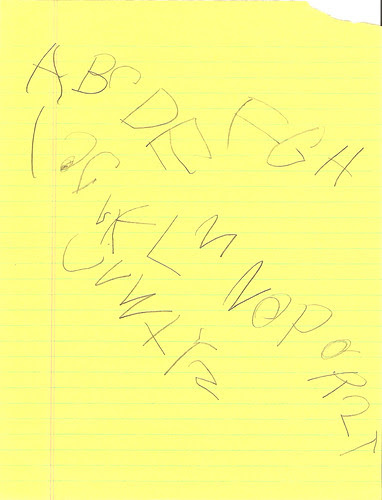 A B C D E F G H
I J
K L M N O P Q R S T
U V W X Y Z